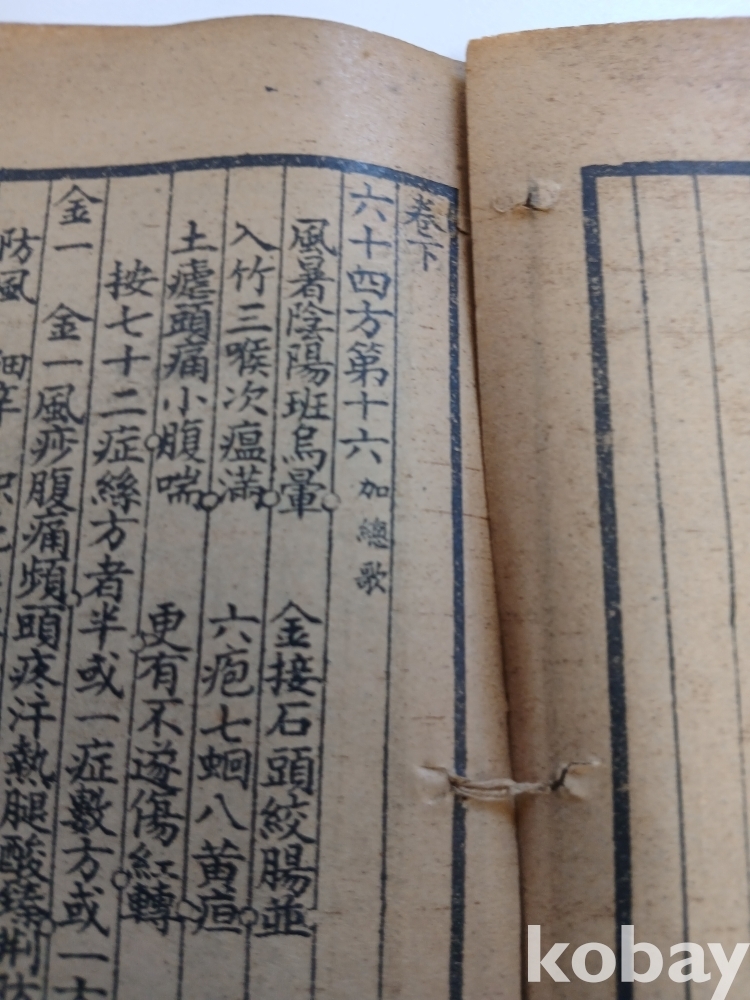 卷下
六十四方第十六 加總歌
風暑陰陽班烏暈 金接石頭絞腸並
入竹三喉次瘟滿 六疤七蛔八黄疸
土瘧頭痛小腹喘 更有不遂傷紅轉
按七十二症絲方者半或一症數方或一
金一 金一風痧腹痛煩頭疼汗熱腿酸臻荆防
防風 細辛
kobay